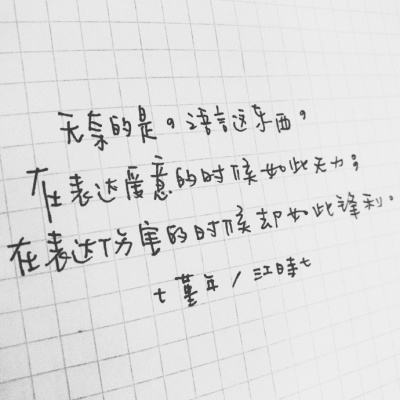 无奈的是。语言这东西,
在表达爱意的时候如此无力;
在表达伤害的时候却如此锋利。
蓳年/江时